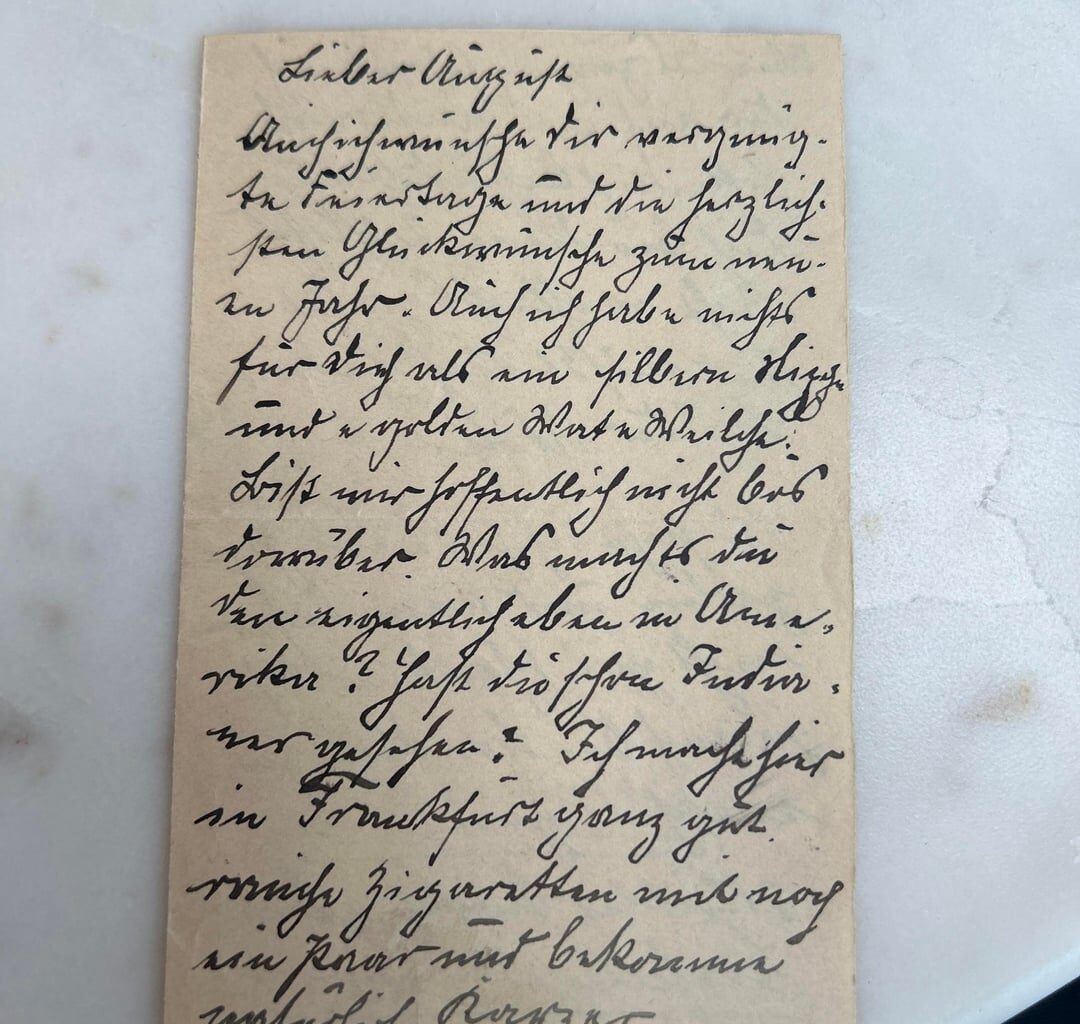 Lieber August
Auch ich wünsche Dir vergnüg-
te Feiertage und die herzlich-
sten Glückwünsche zum neu-
en Jahr. Auch ich habe nichts
für Dich als ein silbern Nixge
und e golden Wart e Weilche.
Bist mir hoffentlich nicht bös
darrüber. Was machts du
den eigentlich eben in Ame-
rika? Hast du schon India-
ner gesehen? Ich mache hier
in Frankfurt ganz gut.
rauche Zigaretten mit noch
ein Paar und bekomme
natürlich Karzer